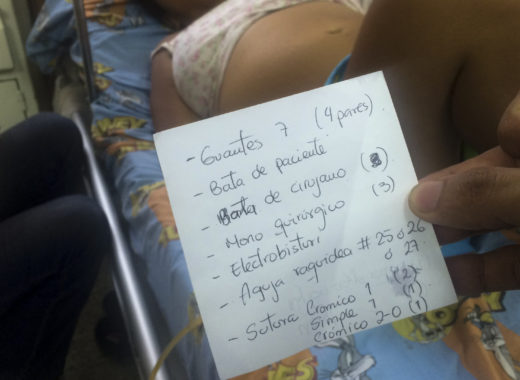 - Guantes 7 (4 pares).
- Bata de paciente
- Bata de cirujano (3).
- Mono quirúrgico (3)
- Electrobisturi
- Aguja raquidea # 25 ó 26
ó 27.
- Sutura Cromico 1 (2)
Simple 1 (1)
Cromico 2-0 (1)